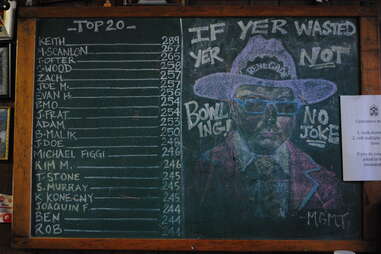 -TOP 20-
KEITH 289
M. SCANLON 267
T. OFFER 265
C. WOOD 258
ZACH 258
JOE M. 257
EVAN H. 256
BMO 254
J. FRAT 254
ADAM 253
B-MALIK 250
J-DOE 249
MICHAEL FIGGI 246
KIM M. 246
T-STONE 245
S. MURRAY 245
K KONECNY 245
JOAQUIN F. 244
BEN 244
ROB 244
IF YER WASTED
YER NOT
RENEGADE
BOWL
ING!
NO
JOKE
-MGMT